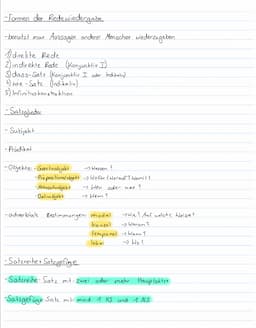 -Formen der Redewiedergabe
-benutzt man Aussagen anderer Menschen wiederzugeben
1) direkte Rede
2) indirekte Rede (Konjunktiv I)
3) dass-Satz (Konjunktiv I oder Indikativ)
4) wie-Satz (Indikativ)
5) Infinitivkonstruktion
-Satzglieder
-Subjekt
-Prädikat
-Objekte: -Genitivobjekt -> Wessen?
-Präpositionalobjekt
-Akkusativobjekt -> Wen oder was?
-Dativobjekt -> Wem?
-adverbiale Bestimmungen: -modal -> Wie? Auf welche Weise?
-kausal -> Warum?
-temporal -> Wann?
-lokal -> Wo?
-Satzreihe + Satzgefüge
-Satzreihe- Satz mit zwei oder mehr Hauptsätzen
-Satzgefüge- Satz mit mind. 1 HS und 1 NS